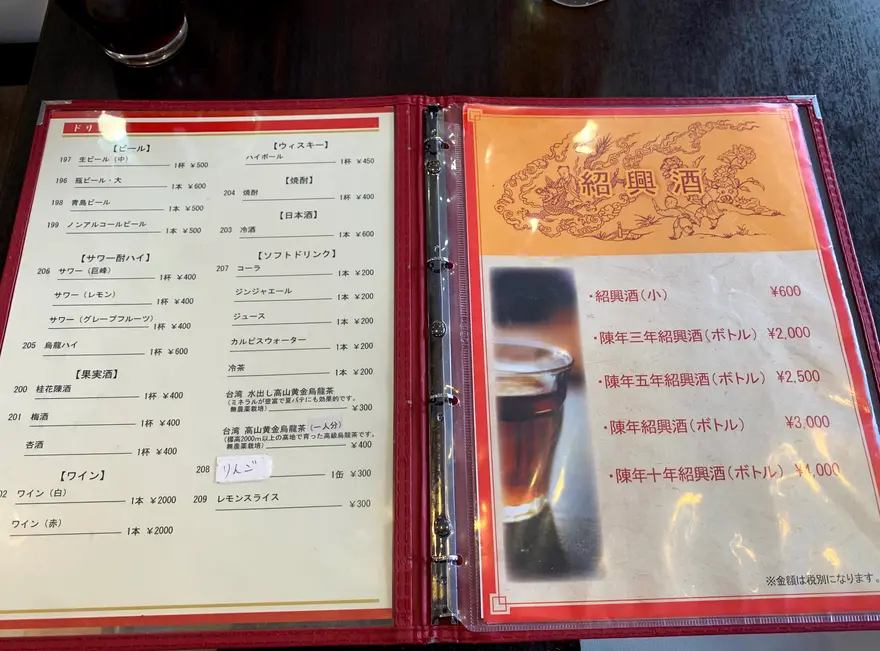 ドリ
【ビール】
197 生ビール（中） 1杯 ¥500
196 瓶ビール・大 1本 ¥600
198 青島ビール 1本 ¥500
199 ノンアルコールビール 1本 ¥500
【サワー酎ハイ】
206 サワー（巨峰） 1杯 ¥400
サワー（レモン） 1杯 ¥400
サワー（グレープフルーツ） 1杯 ¥400
205 烏龍ハイ 1杯 ¥600
【果実酒】
200 桂花陳酒 1杯 ¥400
201 梅酒 1杯 ¥400
杏酒 1杯 ¥400
【ワイン】
02 ワイン（白） 1本 ¥2000
ワイン（赤） 1本 ¥2000
【ウィスキー】
ハイボール 1杯 ¥450
【焼酎】
204 焼酎 1杯 ¥400
【日本酒】
203 冷酒 1本 ¥600
【ソフトドリンク】
207 コーラ 1本 ¥200
ジンジャエール 1本 ¥200
ジュース 1本 ¥200
カルピスウォーター 1本 ¥200
冷茶 1本 ¥200
台湾 水出し高山黄金烏龍茶
（ミネラルが豊富で夏バテにも効果的です。
無農薬栽培） ¥300
台湾 高山黄金烏龍茶（一人分）
（標高2000m以上の高地で育った高級烏龍茶です。
無農薬栽培） ¥400
208 りんご 1缶 ¥300
209 レモンスライス ¥300
紹興酒
・紹興酒（小） ¥600
・陳年三年紹興酒（ボトル） ¥2,000
・陳年五年紹興酒（ボトル） ¥2,500
・陳年紹興酒（ボトル） ¥3,000
・陳年十年紹興酒（ボトル） ¥4,000
※金額は税別になります。